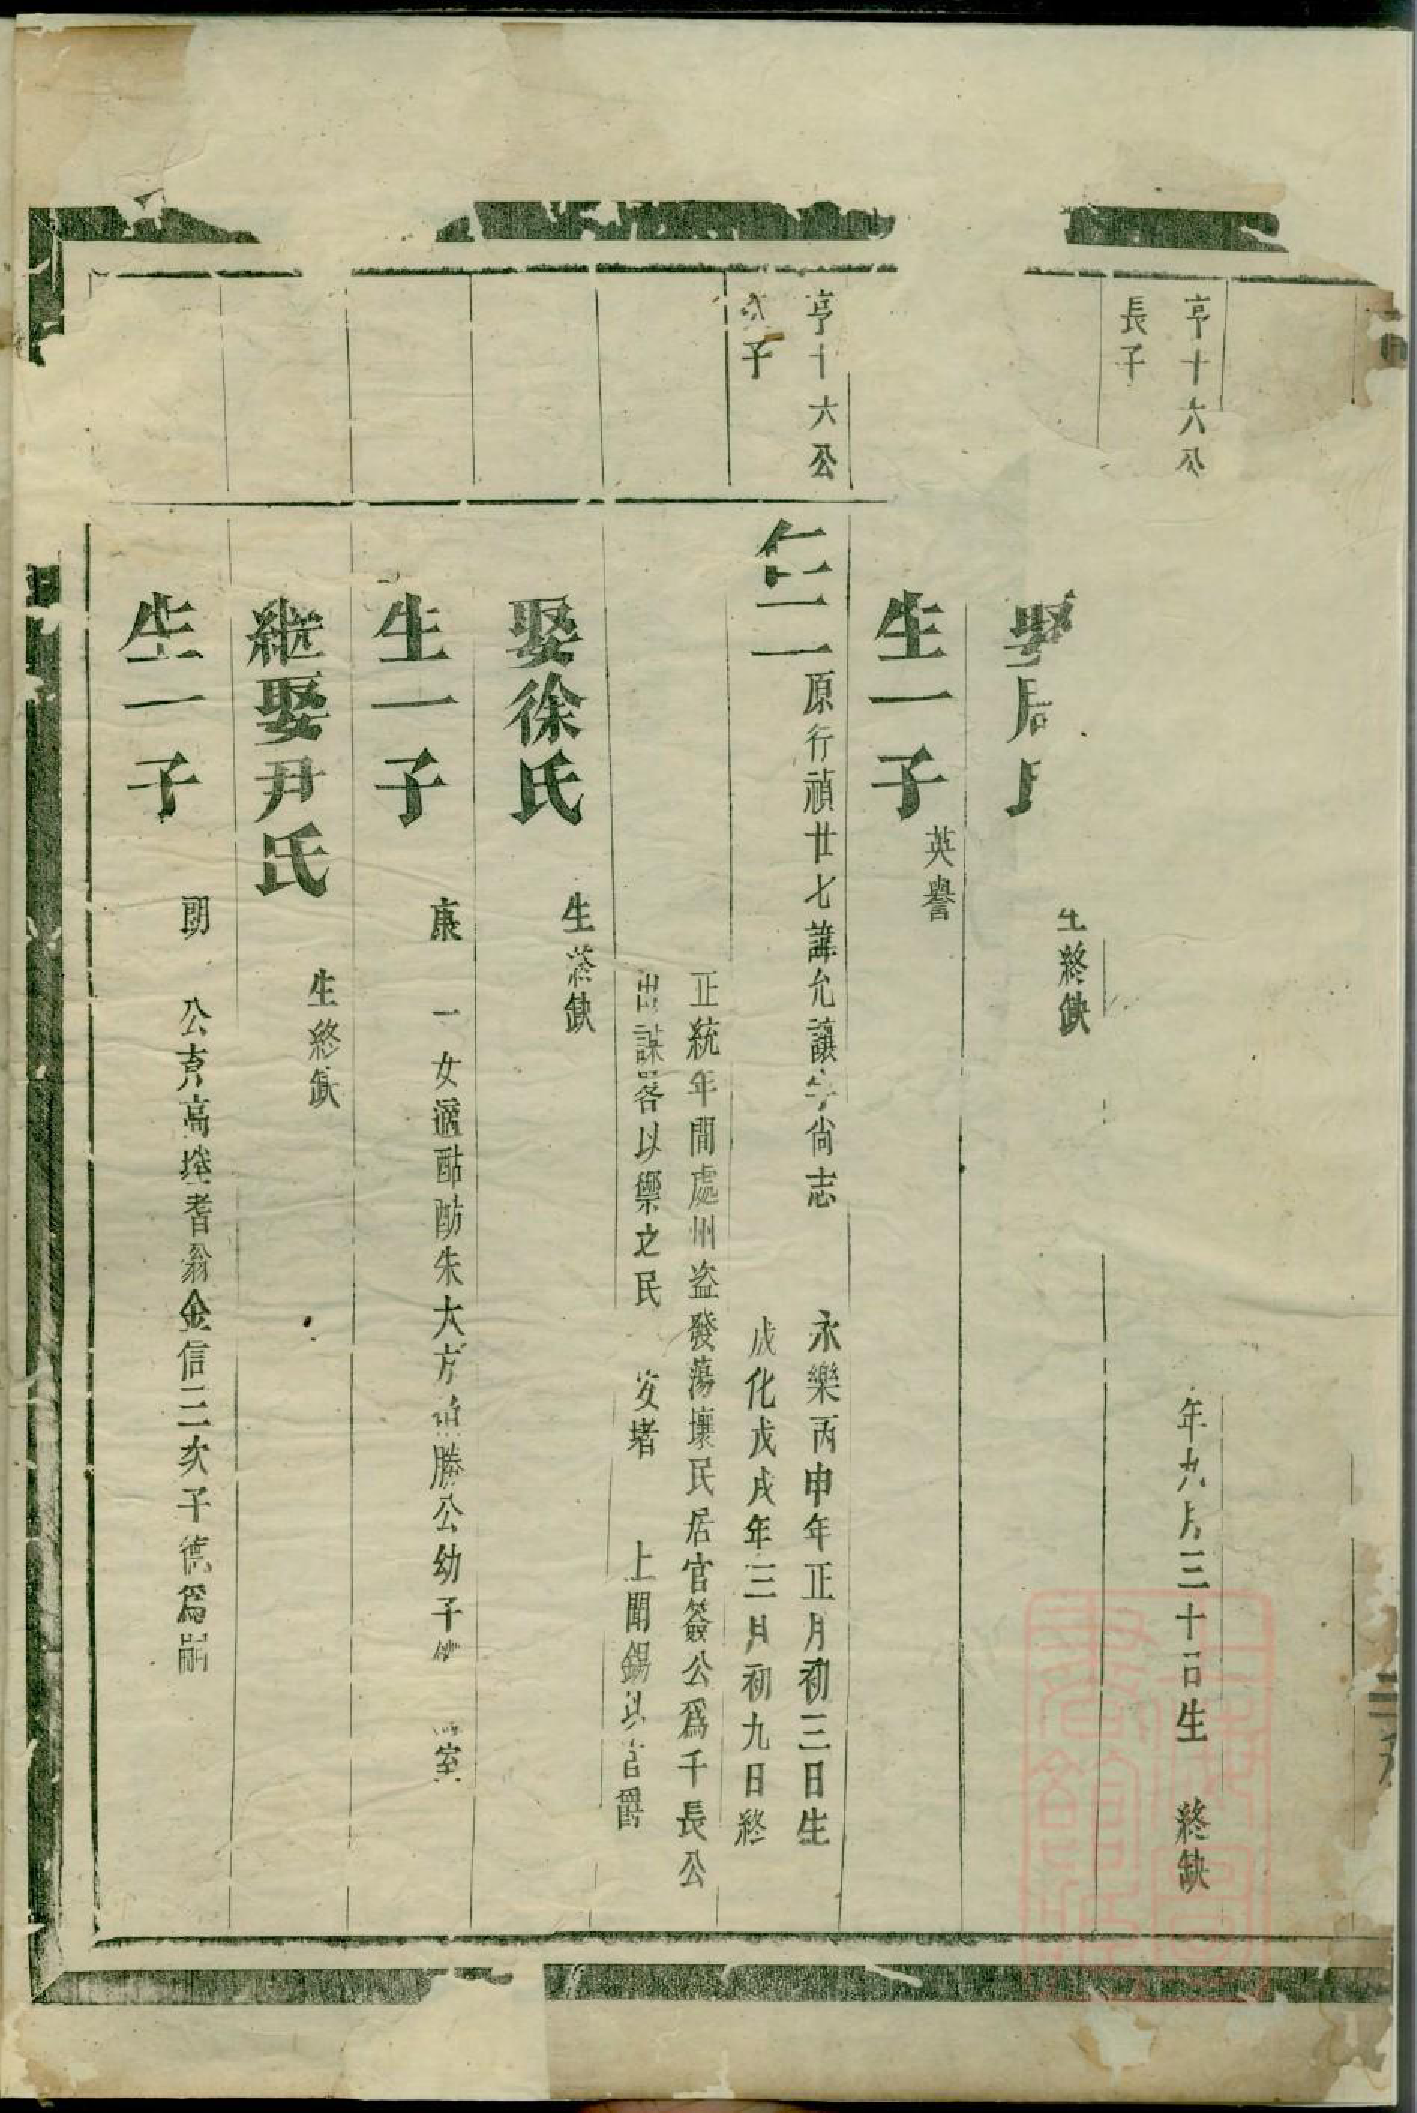 亨十六公
長子
年九月三十日生 終缺
娶周氏
生終缺
生一子
英譽
亨十六公
次子
仁二一
原行禎廿七諱允讓字尚志
永樂丙申年正月初三日生
成化戊戌年三月初九日終
正統年間處州盜發蕩壞民居官簽公爲千長公
出謀畧以禦之民 安堵 上聞錫以官爵
娶徐氏
生終缺
生一子
康 一女適酤坊朱大方 勝公幼子 室
繼娶尹氏
生終缺
生一子
朗 公 高 耆翁金信三次子德爲嗣